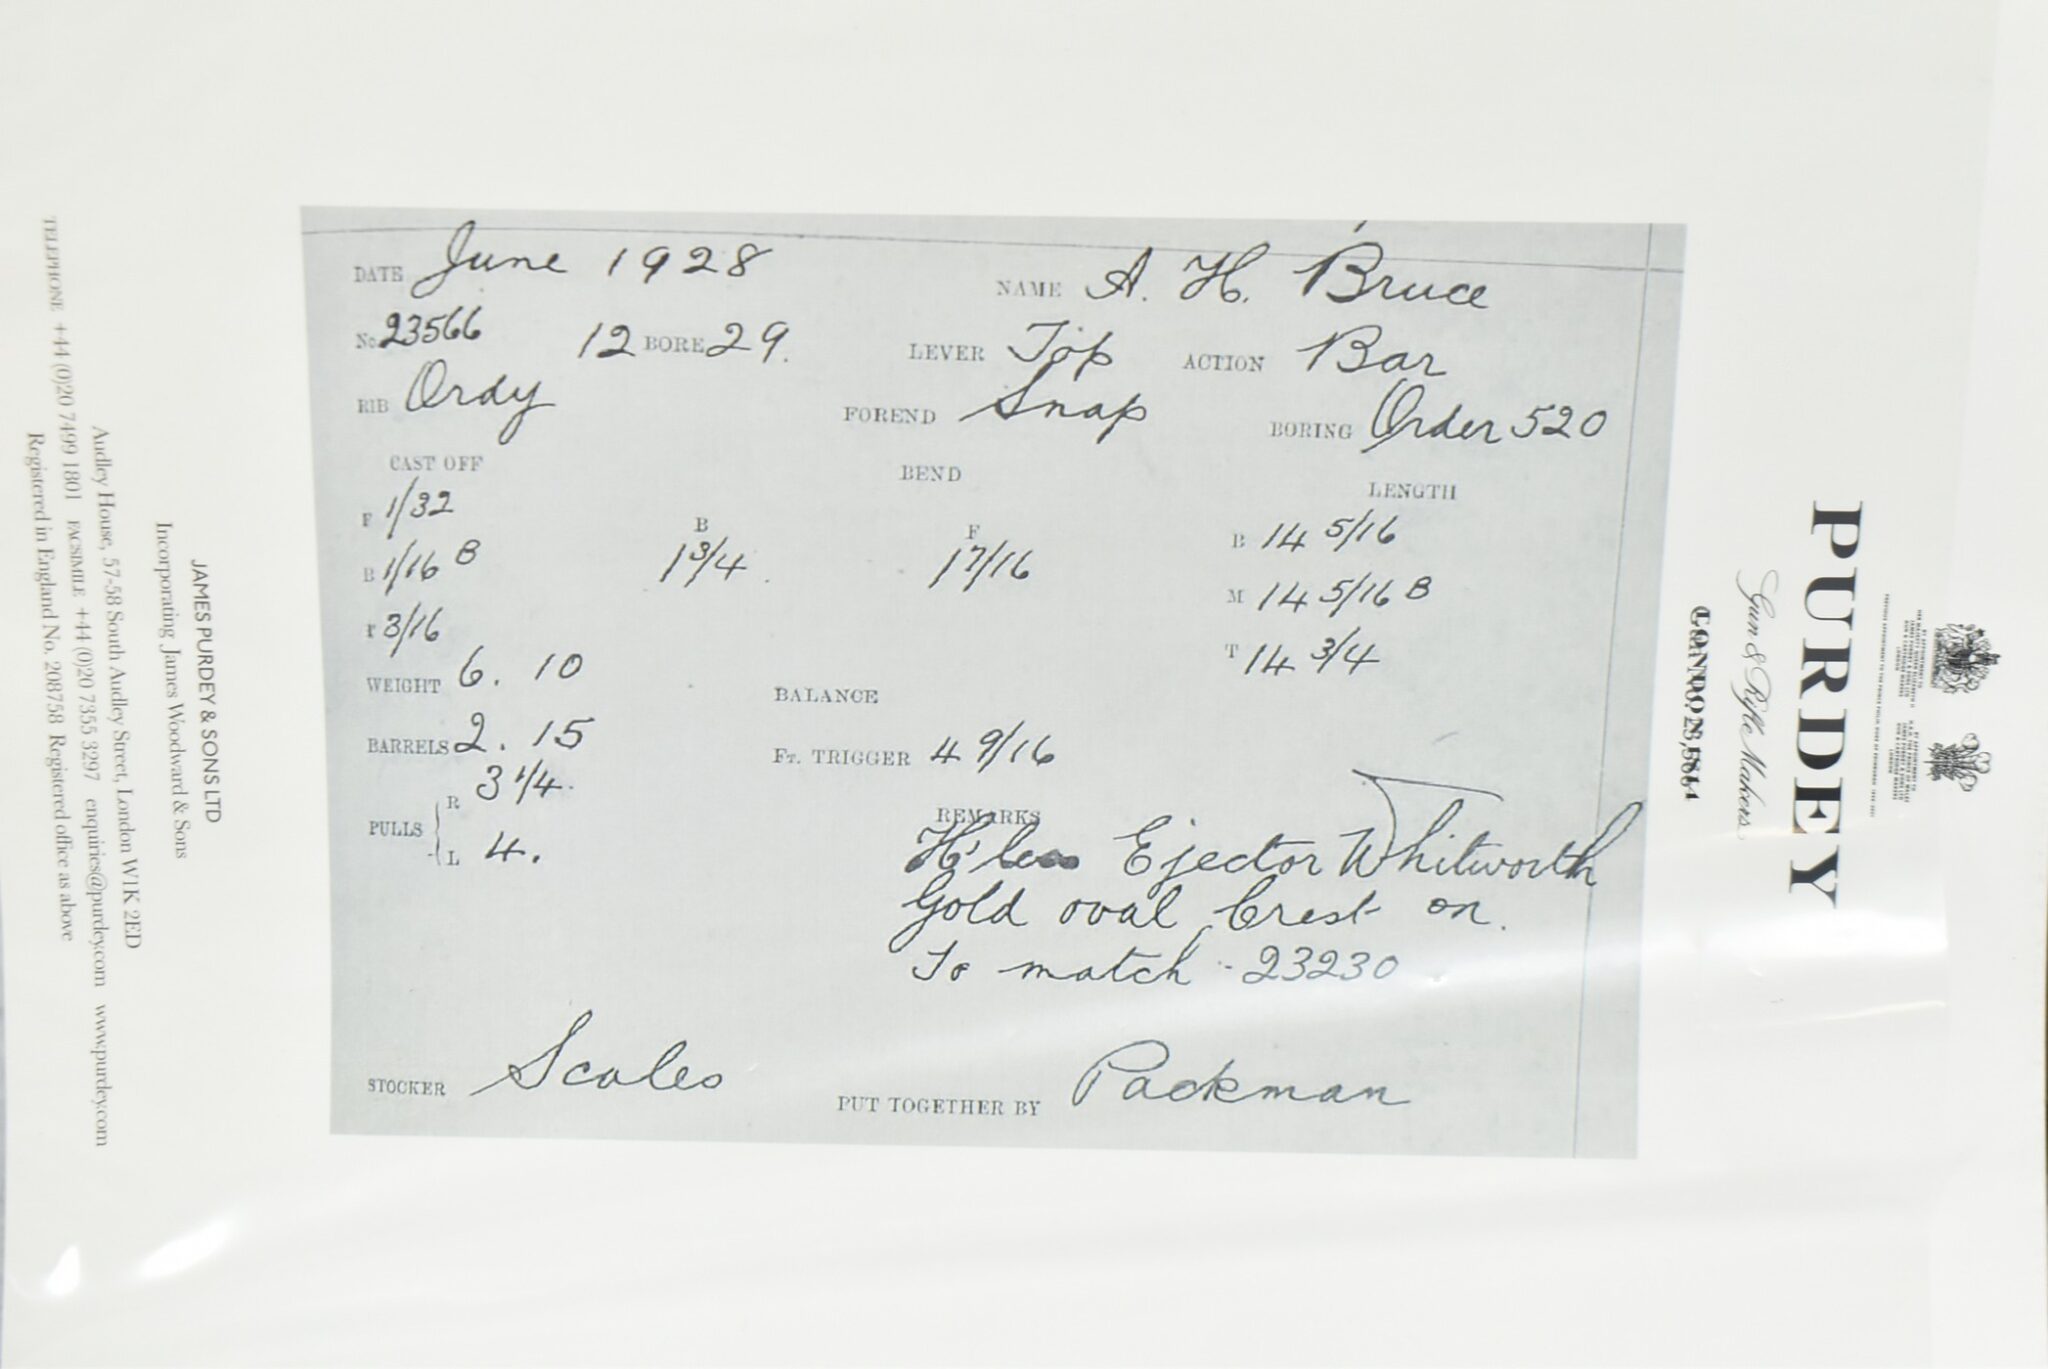 DATE June 1928 NAME A. H. Bruce
No. 23566 12 BORE 29. LEVER Top ACTION Bar
RIB Ordy FOREND Snap BORING Order 520
CAST OFF BEND LENGTH
F 1/32 B 1 3/4 F 1 7/16 B 14 5/16
B 1/16 B M 14 5/16 B
T 3/16 T 14 3/4
WEIGHT 6. 10 BALANCE
BARRELS 2. 15 FT. TRIGGER 4 9/16
PULLS R 3 1/4.
L 4.
REMARKS
H'less Ejector Whitworth
Gold oval Crest on.
To match - 23230
STOCKER Scales PUT TOGETHER BY Packman
PURDEY
Gun & Rifle Makers
LONDON
JAMES PURDEY & SONS LTD
Incorporating James Woodward & Sons
Audley House, 57-58 South Audley Street, London W1K 2ED
TELEPHONE +44 (0)20 7499 1801 FACSIMILE +44 (0)20 7355 3297 enquiries@purdey.com www.purdey.com
Registered in England No. 208758 Registered office as above